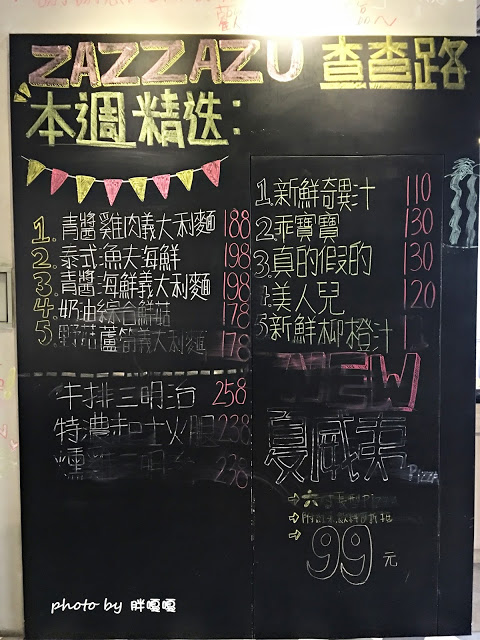 ZAZZAZU 查查路
本週精選:
1. 青醬雞肉義大利麵 188
2. 泰式漁夫海鮮 198
3. 青醬海鮮義大利麵 198
4. 奶油綜合鮮菇 178
5. 野菇蘆筍義大利麵 178
牛排三明治 258
特濃起士火腿 238
燻雞三明治 238
1. 新鮮奇異汁 110
2. 乖寶寶 130
3. 真的假的 130
4. 美人兒 120
5. 新鮮柳橙汁
NEW
夏威夷 PIZZA
99元
photo by 胖嘎嘎